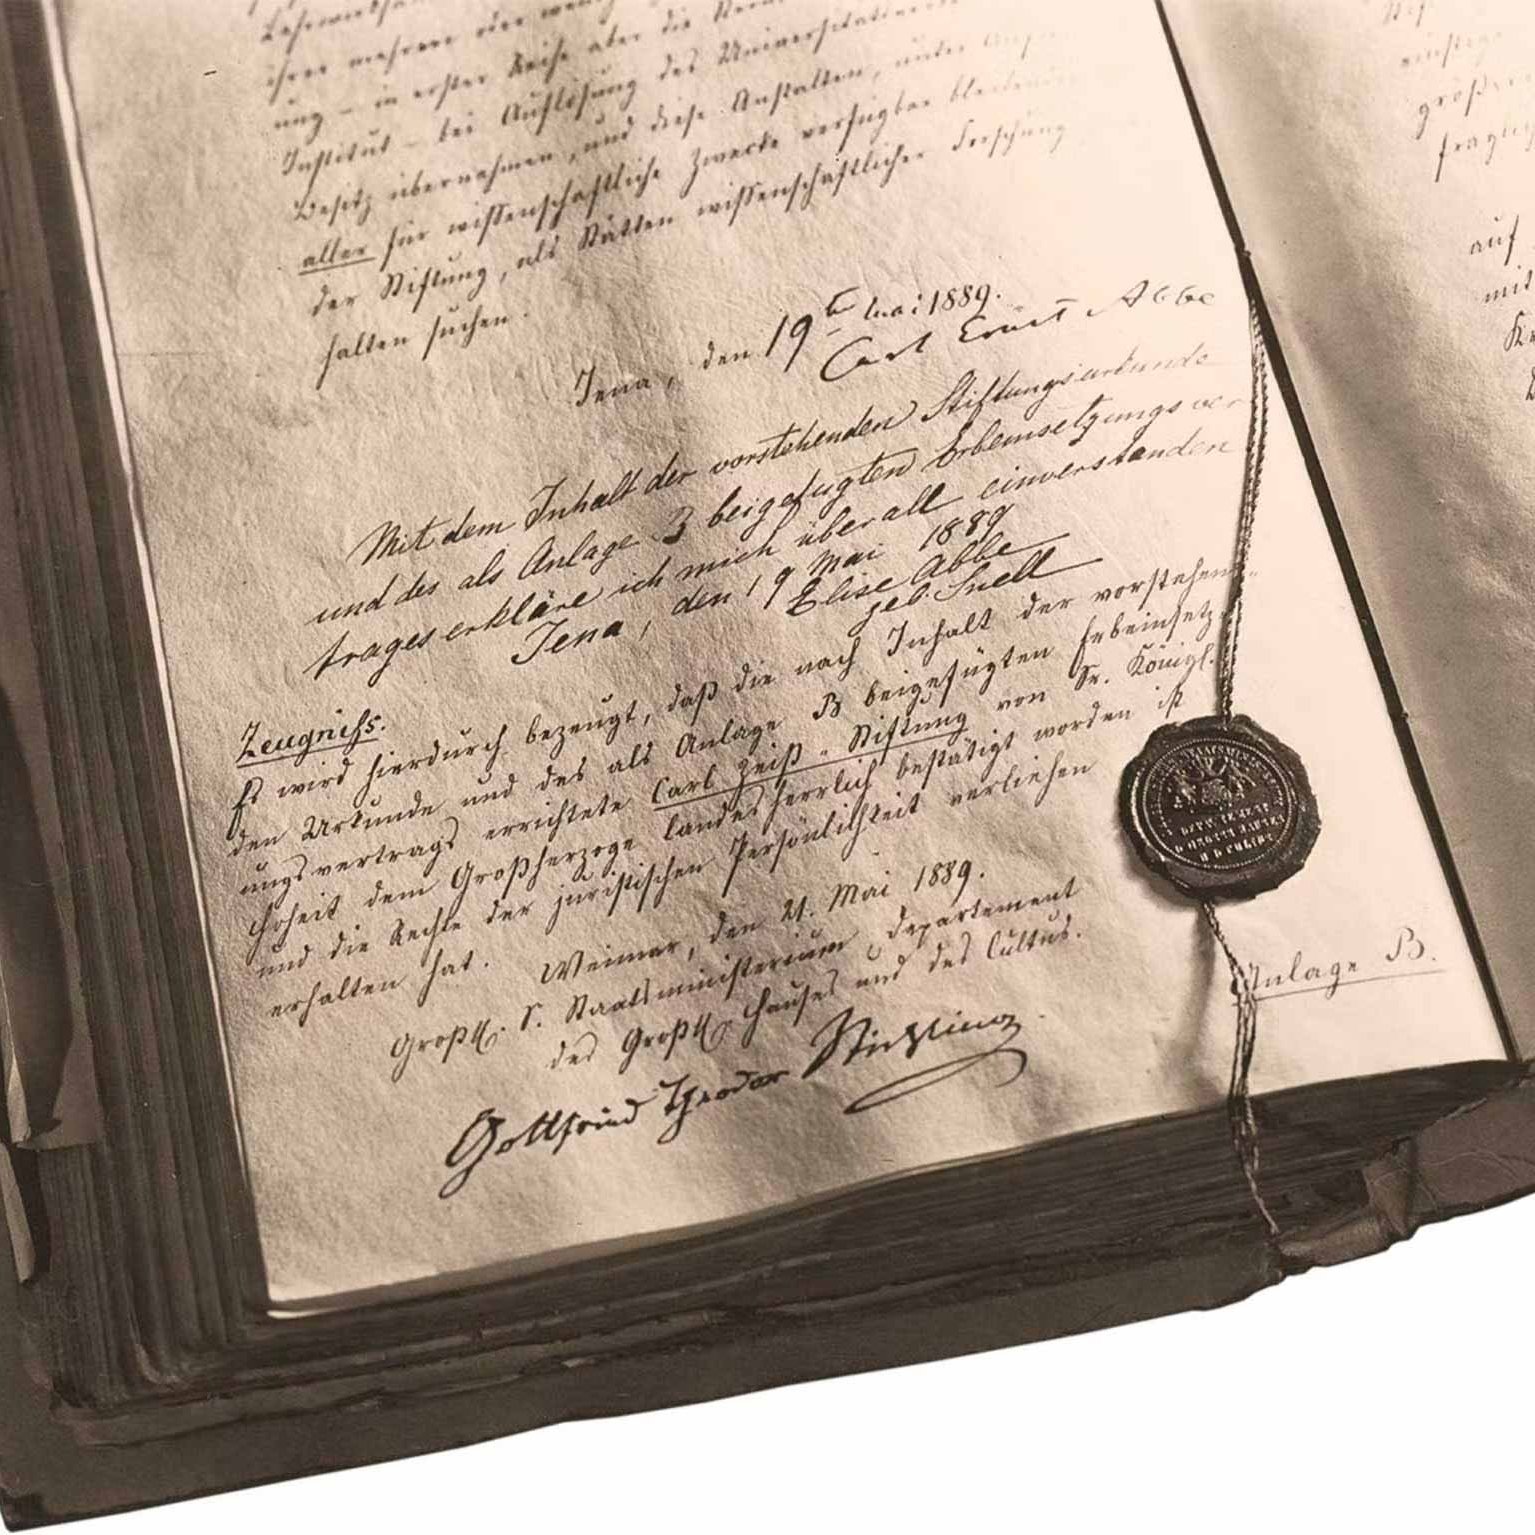 ihrer mehrere oder wenig
ung – in erster Reihe aber die
Institut – bei Auflösung des Universitäts
Besitz übernehmen, und diese Anstalten, unter
aller für wissenschaftliche Zwecke verfügbar bleibenden
der Stiftung, als Stätten wissenschaftlicher Forschung
halten suchen.
Jena, den 19ten Mai 1889.
Carl Ernst Abbe
Mit dem Inhalt der vorstehenden Stiftungsurkunde
und des als Anlage B beigefügten Erbeinsetzungsver
trages erkläre ich mich überall einverstanden
Jena, den 19 Mai 1889
Elise Abbe
geb. Snell
Zeugniss.
Es wird hierdurch bezeugt, daß die nach Inhalt der vorstehen-
den Urkunde und des als Anlage B beigefügten Erbeinsetz
ungsvertrags errichtete Carl Zeiß-Stiftung von Sr. Königl.
Hoheit dem Großherzoge landesherrlich bestätigt worden ist
und die Rechte der juristischen Persönlichkeit verliehen
erhalten hat.
Weimar, den 21. Mai 1889.
Großh. S. Staatsministerium, Departement
des Großh. Hauses und des Cultus.
Gottfried Theodor Stichling
Anlage B.
auf
mit